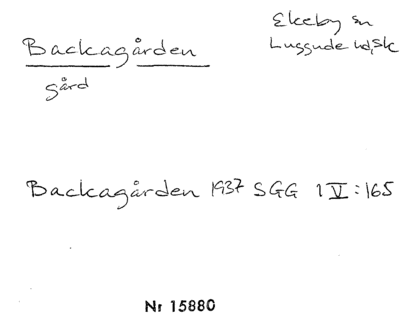 Backagården
gård
Ekeby sn
Luggude hd, Sk
Backagården 1937 SGG 1 V:165
Nr 15880